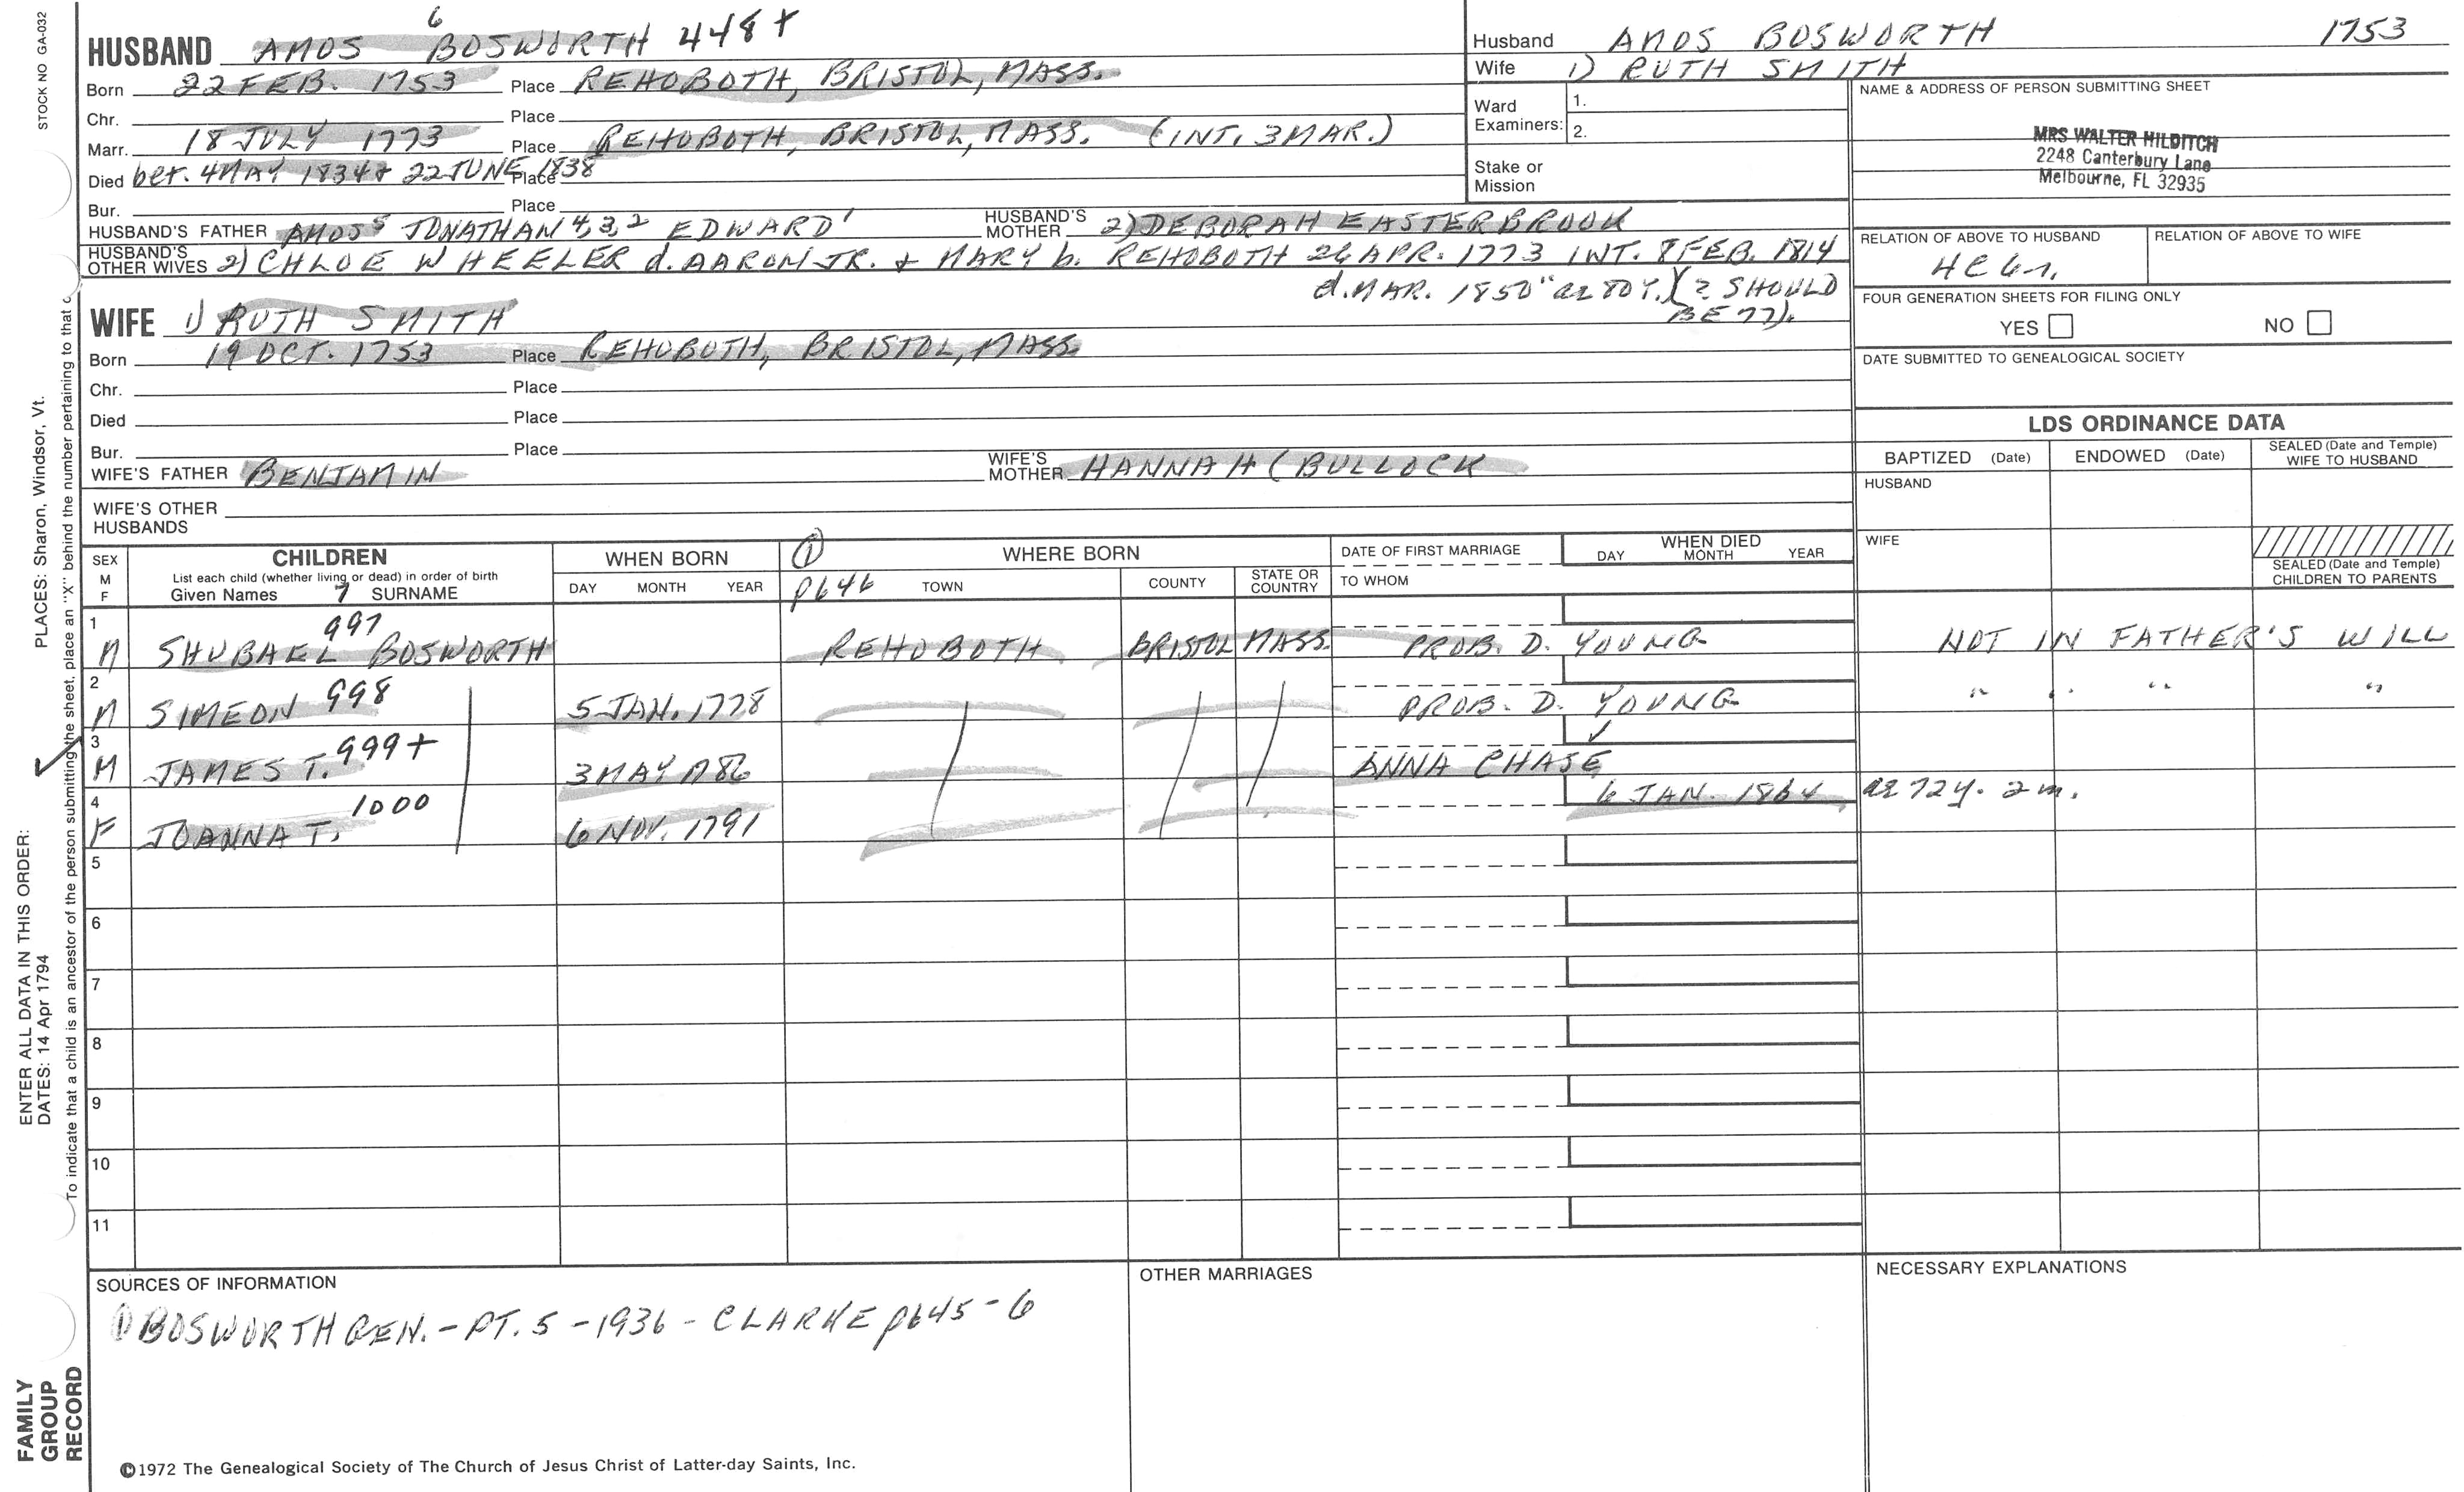 STOCK NO GA-032
HUSBAND AMOS 6 BOSWORTH 448+
Born 22 FEB. 1753 Place REHOBOTH, BRISTOL, MASS.
Chr. Place
Marr. 18 JULY 1773 Place REHOBOTH, BRISTOL, MASS. (INT. 3 MAR.)
Died bet. 4 MAY 1834 + 22 JUNE 1838 Place
Bur. Place
HUSBAND'S FATHER AMOS5 JONATHAN 4,3,2 EDWARD1 HUSBAND'S MOTHER 2) DEBORAH EASTERBROOK
HUSBAND'S OTHER WIVES 2) CHLOE WHEELER d. AARON JR. + MARY b. REHOBOTH 26 APR. 1773 INT. 8 FEB. 1814
d. MAR. 1850 "ae 80 Y." (? SHOULD
BE 77).
WIFE 1) RUTH SMITH
Born 19 OCT. 1753 Place REHOBOTH, BRISTOL, MASS
Chr. Place
Died Place
Bur. Place
WIFE'S FATHER BENJAMIN WIFE'S MOTHER HANNAH (BULLOCK
WIFE'S OTHER
HUSBANDS
Husband AMOS BOSWORTH 1753
Wife 1) RUTH SMITH
Ward
Examiners:
1.
2.
Stake or
Mission
NAME & ADDRESS OF PERSON SUBMITTING SHEET
MRS WALTER HILDITCH
2248 Canterbury Lane
Melbourne, FL 32935
RELATION OF ABOVE TO HUSBAND
RELATION OF ABOVE TO WIFE
FOUR GENERATION SHEETS FOR FILING ONLY
YES NO
DATE SUBMITTED TO GENEALOGICAL SOCIETY
LDS ORDINANCE DATA
BAPTIZED (Date) ENDOWED (Date) SEALED (Date and Temple) WIFE TO HUSBAND
HUSBAND
WIFE
SEALED (Date and Temple)
CHILDREN TO PARENTS
SEX
M
F
CHILDREN
List each child (whether living or dead) in order of birth
Given Names 7 SURNAME
WHEN BORN
DAY MONTH YEAR
1 WHERE BORN
p646 TOWN COUNTY STATE OR COUNTRY
DATE OF FIRST MARRIAGE
TO WHOM
WHEN DIED
DAY MONTH YEAR
1 997
M SHUBAEL BOSWORTH REHOBOTH BRISTOL MASS. PROB. D. YOUNG NOT IN FATHER'S WILL
2
M SIMEON 998 5 JAN. 1778 PROB. D. YOUNG " " " "
3
M JAMES T. 999+ 3 MAY 1786 ANNA CHASE
4 1000 6 JAN. 1864 ae 72y. 2m.
F JOANNA T. 6 NOV. 1791
5
6
7
8
9
10
11
SOURCES OF INFORMATION
1 BOSWORTH GEN. - PT. 5 - 1936 - CLARKE p645-6
OTHER MARRIAGES
NECESSARY EXPLANATIONS
©1972 The Genealogical Society of The Church of Jesus Christ of Latter-day Saints, Inc.
PLACES: Sharon, Windsor, Vt.
ENTER ALL DATA IN THIS ORDER:
DATES: 14 Apr 1794
To indicate that a child is an ancestor of the person submitting the sheet, place an "X" behind the number pertaining to that
FAMILY
GROUP
RECORD